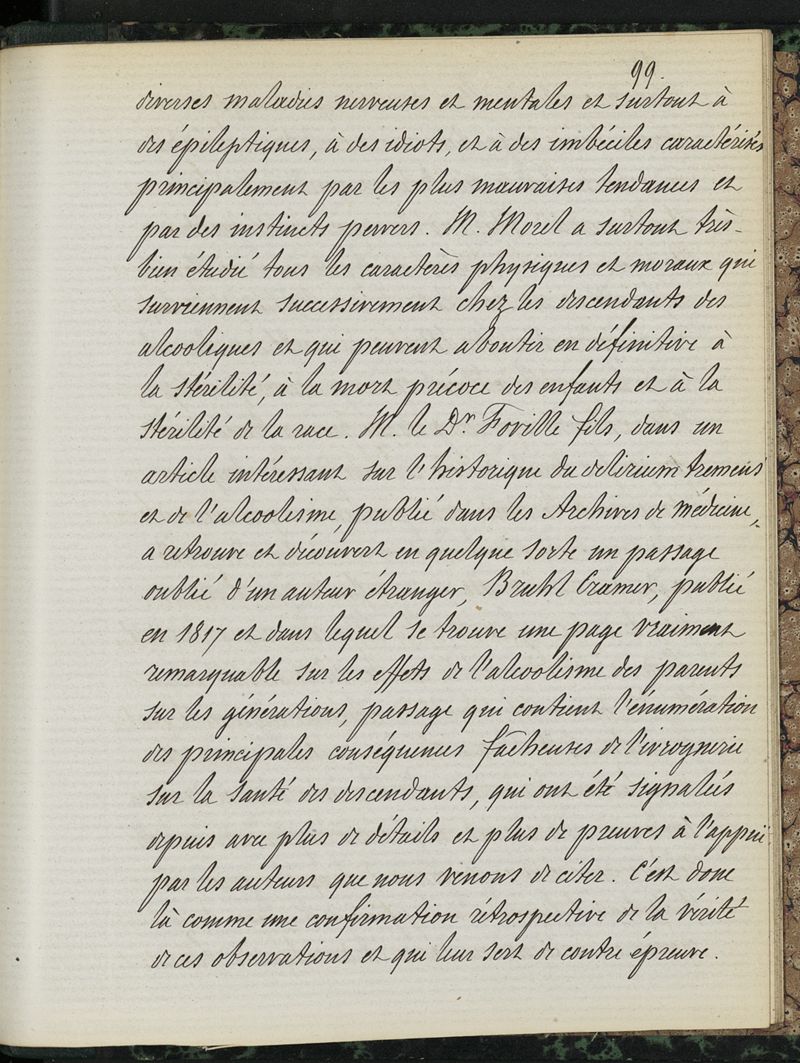 99.
diverses maladies nerveuses et mentales et surtout à
des épileptiques, à des idiots, et à des imbéciles caractérisés
principalement par les plus mauvaises tendances et
par des instincts pervers. M. Morel a surtout très-
bien étudié tous les caractères physiques et moraux qui
surviennent successivement chez les descendants des
alcooliques et qui peuvent aboutir en définitive à
la stérilité, à la mort précoce des enfants et à la
stérilité de la race. M. le Dr. Foville fils, dans un
article intéressant sur l'historique du delirium tremens
et de l'alcoolisme, publié dans les Archives de médecine,
a retrouvé et découvert en quelque sorte un passage
oublié d'un auteur étranger, Bruhl Cramer, publié
en 1817 et dans lequel se trouve une page vraiment
remarquable sur les effets de l'alcoolisme des parents
sur les générations, passage qui contient l'énumération
des principales conséquences facheuses de l'ivrognerie
sur la santé des descendants, qui ont été signalés
depuis avec plus de détails et plus de preuves à l'appui
par les auteurs que nous venons de citer. C'est donc
là comme une confirmation rétrospective de la vérité
de ces observations et qui leur sert de contre épreuve.